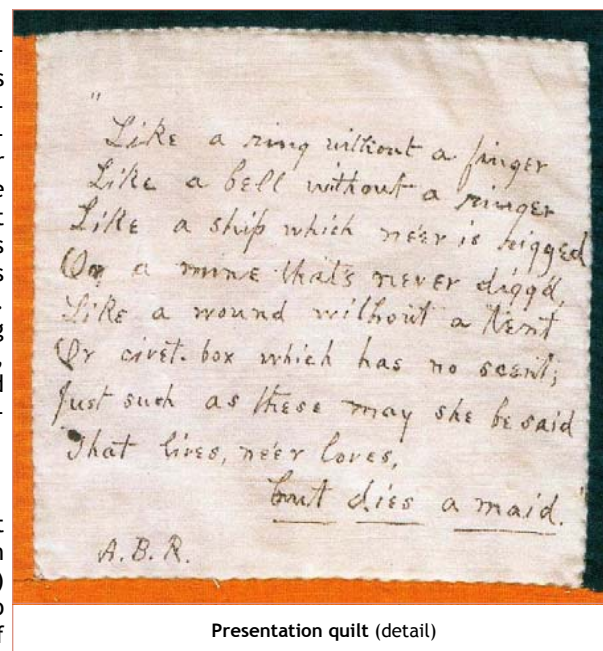 "
Like a ring without a finger
Like a bell without a ringer
Like a ship which ne'er is rigged
Or a mine that's never digg'd,
Like a wound without a tent
Or civet-box which has no scent;
Just such as these may she be said
That lives, ne'er loves,
but dies a maid."
A.B.R.
Presentation quilt (detail)